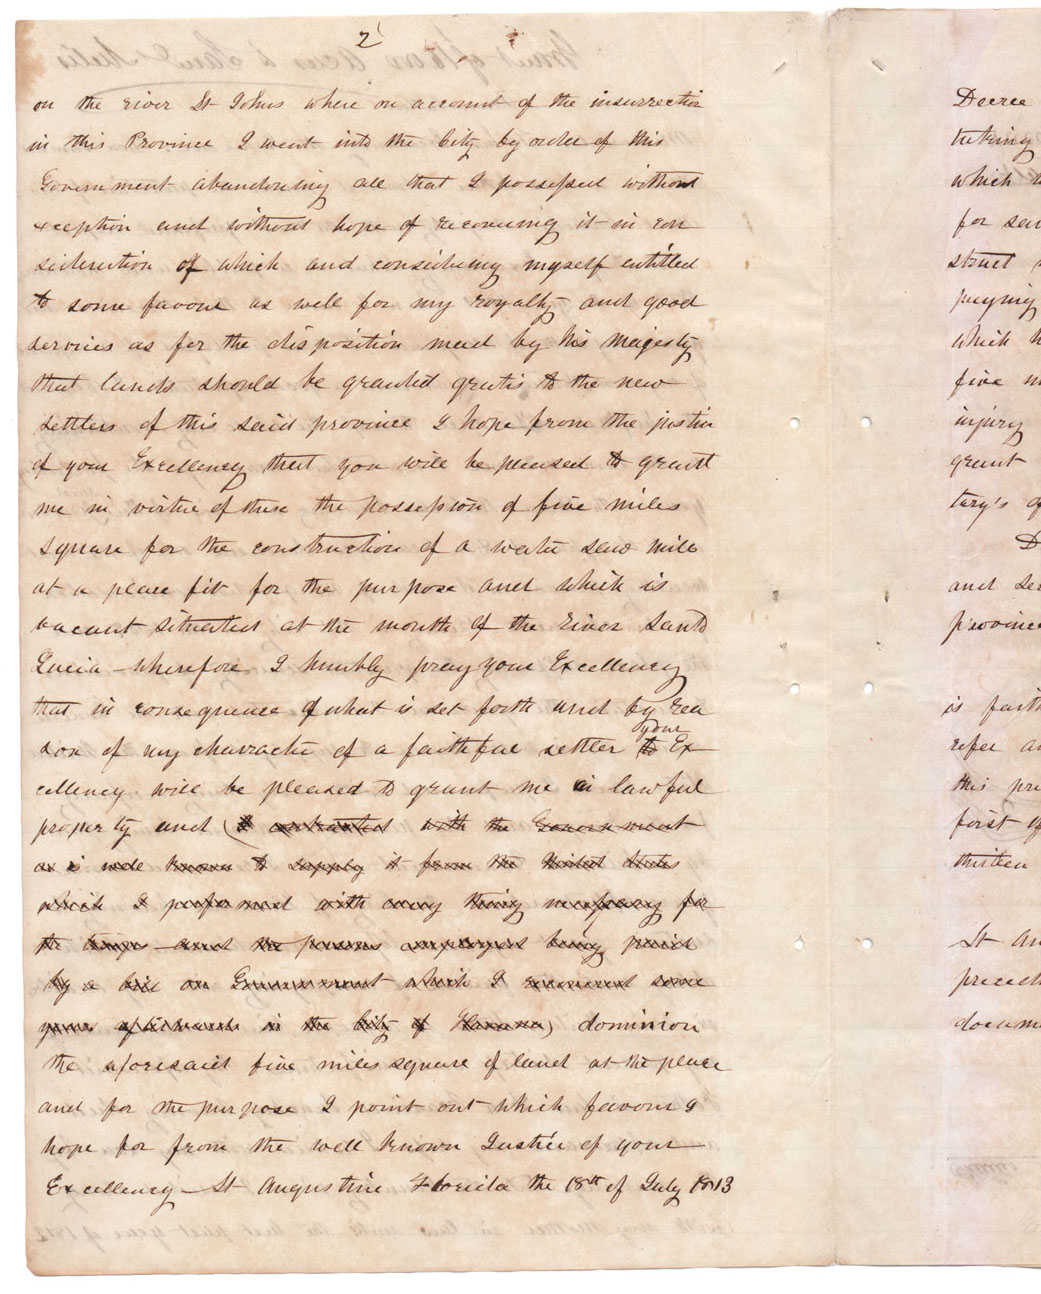 2
on the river St Johns where on account of the insurrection
in this Province I went into the City by order of this
Government abandoning all that I possessed without
exception and without hope of recovering it in con
sideration of which and considering myself entitled
to some favour as well for my royalty and good
services as for the disposition made by his Majesty
that lands should be granted gratis to the new
settlers of this said province I hope from the justice
of your Excellency that you will be pleased to grant
me in virtue of these the possession of five miles
square for the construction of a water saw mill
at a place fit for the purpose and which is
vacant situated at the mouth of the river Santa
Lucia wherefore I humbly pray your Excellency
that in consequence of what is set forth and by rea
your
son of my character of a faithful settler to Ex
cellency will be pleased to grant me in lawful
property and (I contracted with the Government
as is well known to supply it from the United States
which I performed with every thing necessary for
the troops and the persons employed being paid
by a bill on Government which I received some
years afterwards in the City of Havana) dominion
the aforesaid five miles square of land at the place
and for the purpose I point out which favour I
hope for from the well known Justice of your
Excellency St Augustine Florida the 18th of July 1813
Decree
taking
which
for
struct
paying
which
five
injury
grant
tary's
and
province
is faith
refer
this
first of
thirteen
St
preced
docum